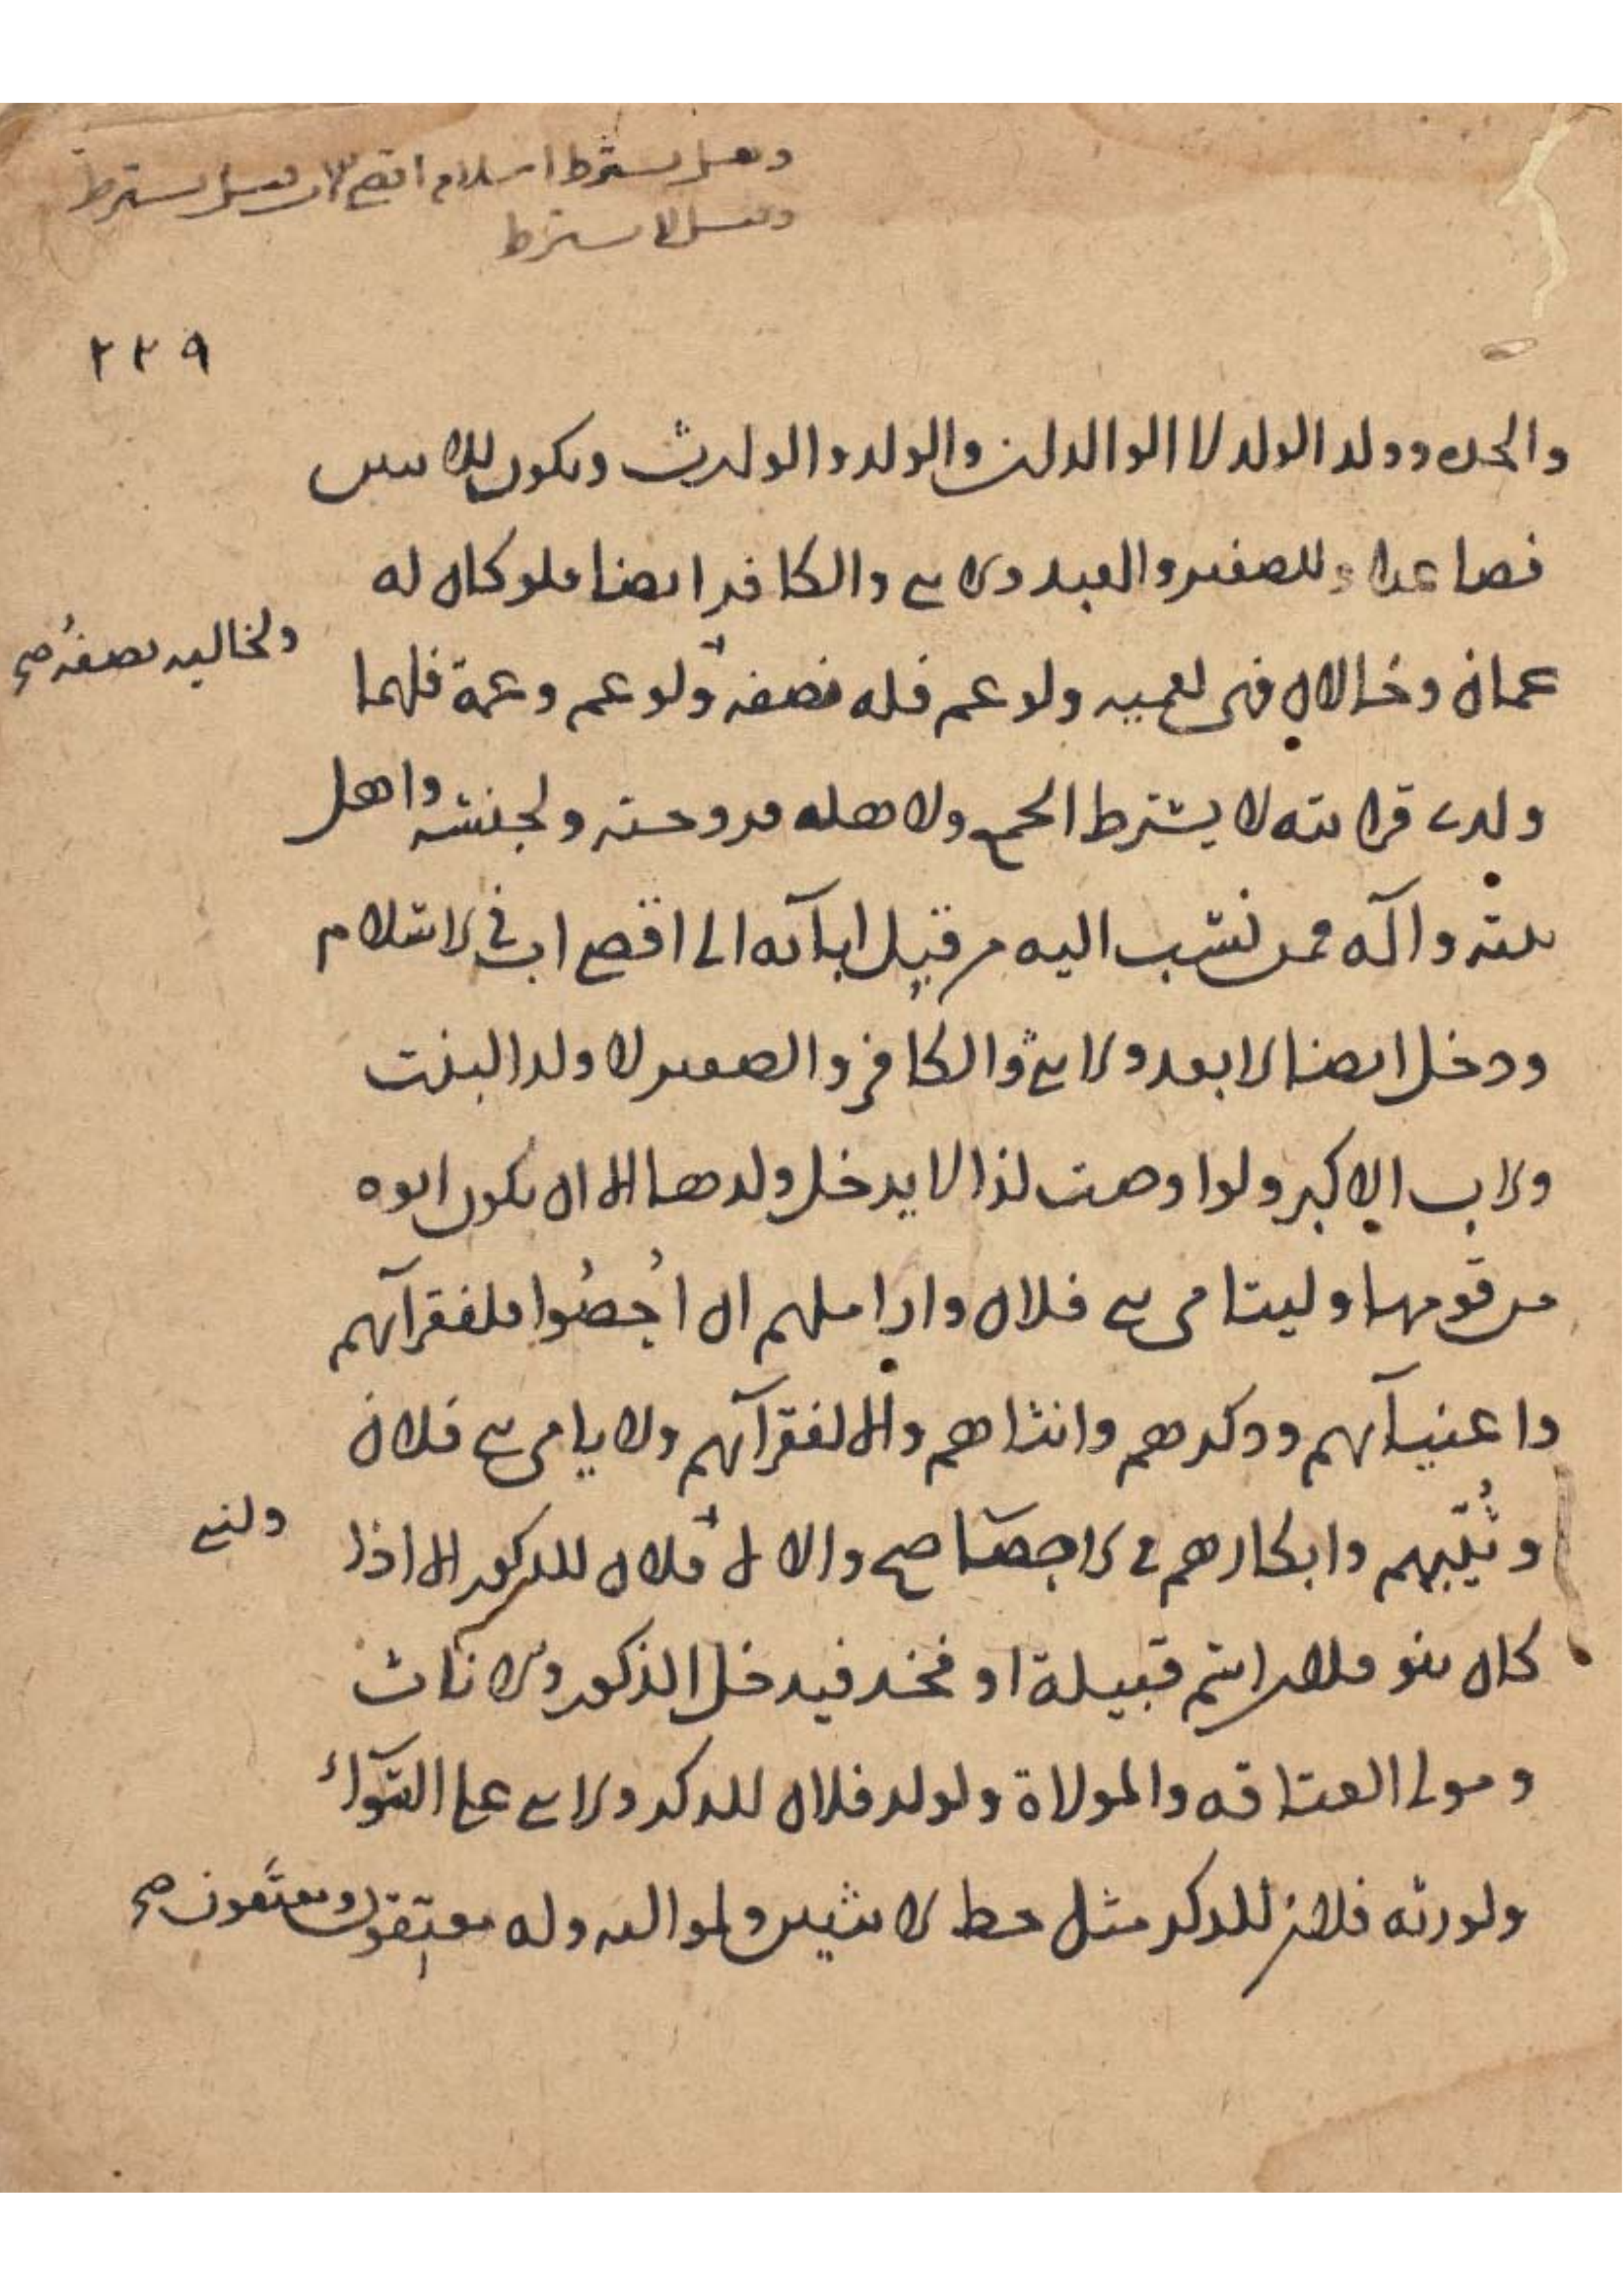 وهل يشترط اسلام اقصى الاب قيل يشترط
وقيل لا يشترط
٢٢٩
والجد وولد الولد لا الوالدان والولد والوارث ويكون للاثنين
فصاعدا وللصغير والعبد والانثى والكافر ايضا فلو كان له
عمان وخالان فهى لعميه ولو عم فله نصفه ولو عم وعمة فلهما
ولخاليه نصفه صح
ولذى قرابته لا يشترط الجمع ولاهله فزوجته ولجنسه واهل
بيته وآله فمن نسب اليه من قبل ابآئه الى اقصى اب فى الاسلام
ودخل ايضا الابعد والانثى والكافر والصغير لا ولد البنت
والاب الاكبر ولو اوصت لذا لا يدخل ولدها الا ان يكون ابوه
من قومها وليتامى بنى فلان واراملهم ان احصوا فلفقرآئهم
واغنيآئهم وذكرهم وانثاهم والا لفقرآئهم ولايامى بنى فلان
وثيبهم وابكارهم فى الاحصا صح والا لا فلان للذكور الا اذا
ولبنى
كان بنو فلان اسم قبيلة او فخذ فيدخل الذكور والاناث
ومولى العتاقه والمولاة ولولد فلان للذكر والانثى على السوآء
ولورثه فلان للذكر مثل حظ الانثيين ولمواليه وله معتقون ومعتقون صح